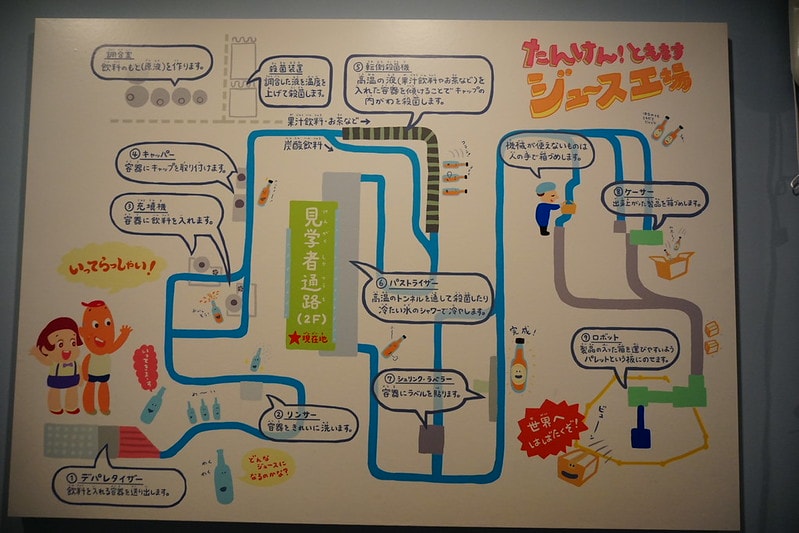 たんけん!ともます
ジュース工場
調合室
飲料のもと(原液)を作ります。
殺菌装置
調合した液を温度を
上げて殺菌します。
⑤転倒殺菌機
高温の液(果汁飲料やお茶など)を
入れた容器を傾けることでキャップの
内がわを殺菌します。
果汁飲料・お茶など→
炭酸飲料
④キャッパー
容器にキャップを取り付けます。
③充填機
容器に飲料を入れます。
いってらっしゃい!
いってきまーす
見学者通路
けんがくしゃつうろ
(2F)
★現在地
⑥パストライザー
高温のトンネルを通して殺菌したり
冷たい水のシャワーで冷やします。
機械が使えないものは
人の手で箱づめします。
⑧ケーサー
出来上がった製品を箱づめします。
完成!
⑨ロボット
製品の入った箱を運びやすいよう
パレットという板にのせます。
⑦シュリンク・ラベラー
容器にラベルを貼ります。
②リンサー
容器をきれいに洗います。
①デパレタイザー
飲料を入れる容器を送り出します。
どんな
ジュースに
なるのかな?
世界へ
はばたくぞ!
ビュー